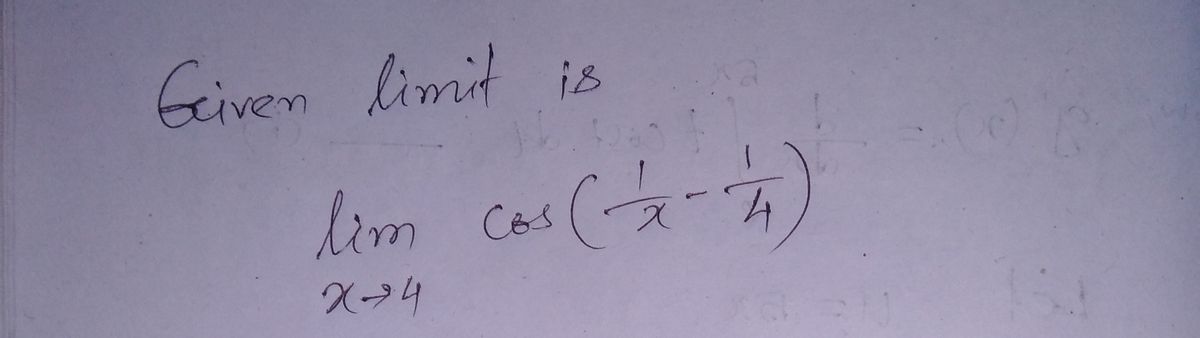 Given limit is
lim cos (1/x - 1/4)
x→4